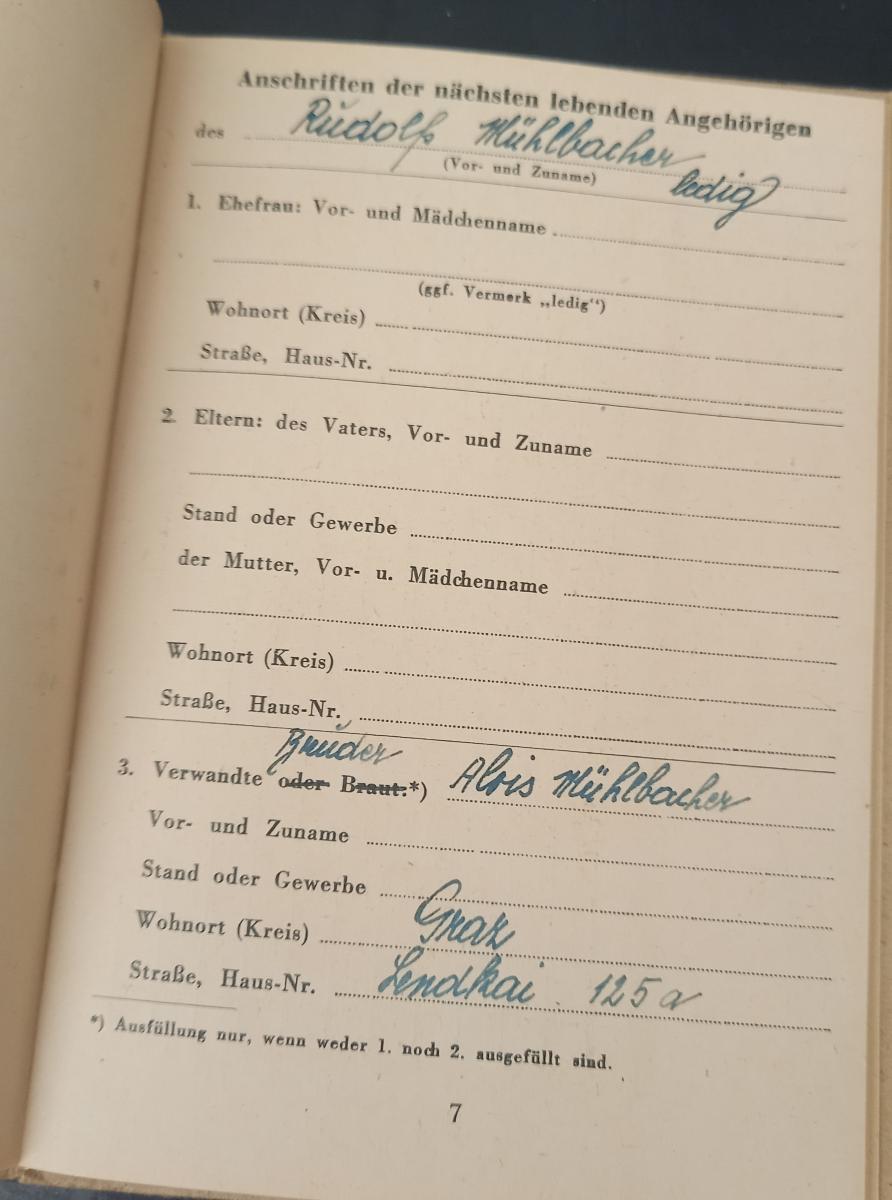 Anschriften der nächsten lebenden Angehörigen
des Rudolf Mühlbacher
(Vor- und Zuname) ledig
1. Ehefrau: Vor- und Mädchenname
(ggf. Vermerk „ledig“)
Wohnort (Kreis)
Straße, Haus-Nr.
2. Eltern: des Vaters, Vor- und Zuname
Stand oder Gewerbe
der Mutter, Vor- u. Mädchenname
Wohnort (Kreis)
Straße, Haus-Nr.
Bruder
3. Verwandte oder Braut:*) Alois Mühlbacher
Vor- und Zuname
Stand oder Gewerbe
Wohnort (Kreis) Graz
Straße, Haus-Nr. Lendkai 125a
*) Ausfüllung nur, wenn weder 1. noch 2. ausgefüllt sind.
7